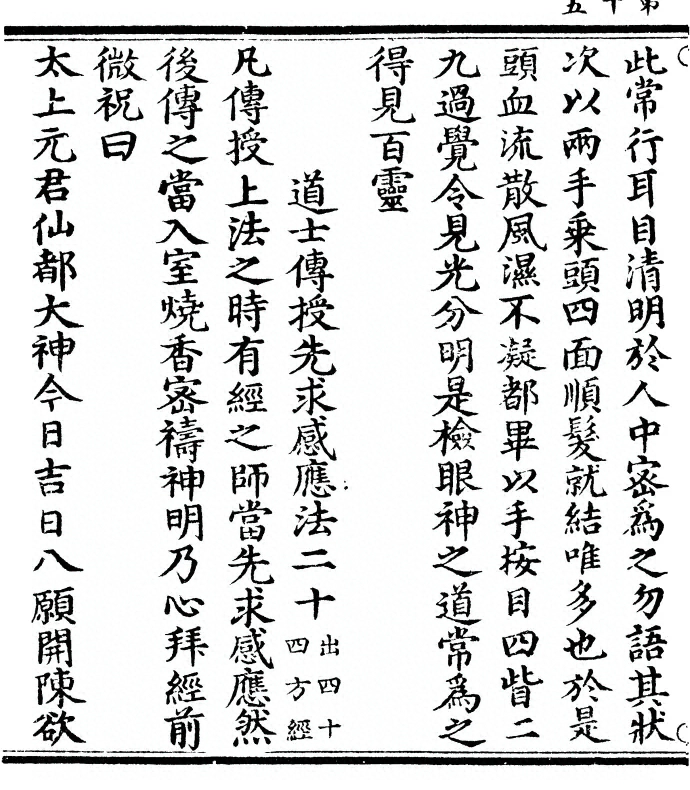 第十五
此常行耳目清明於人中密爲之勿語其狀
次以兩手乗頭四面順髮就結唯多也於是
頭血流散風濕不凝都畢以手按目四眥二
九過覺令見光分明是檢眼神之道常爲之
得見百靈
道士傳授先求感應法二十出四十四方經
凡傳授上法之時有經之師當先求感應然
後傳之當入室燒香密禱神明乃心拜經前
微祝曰
太上元君仙都大神今日吉日八願開陳欲